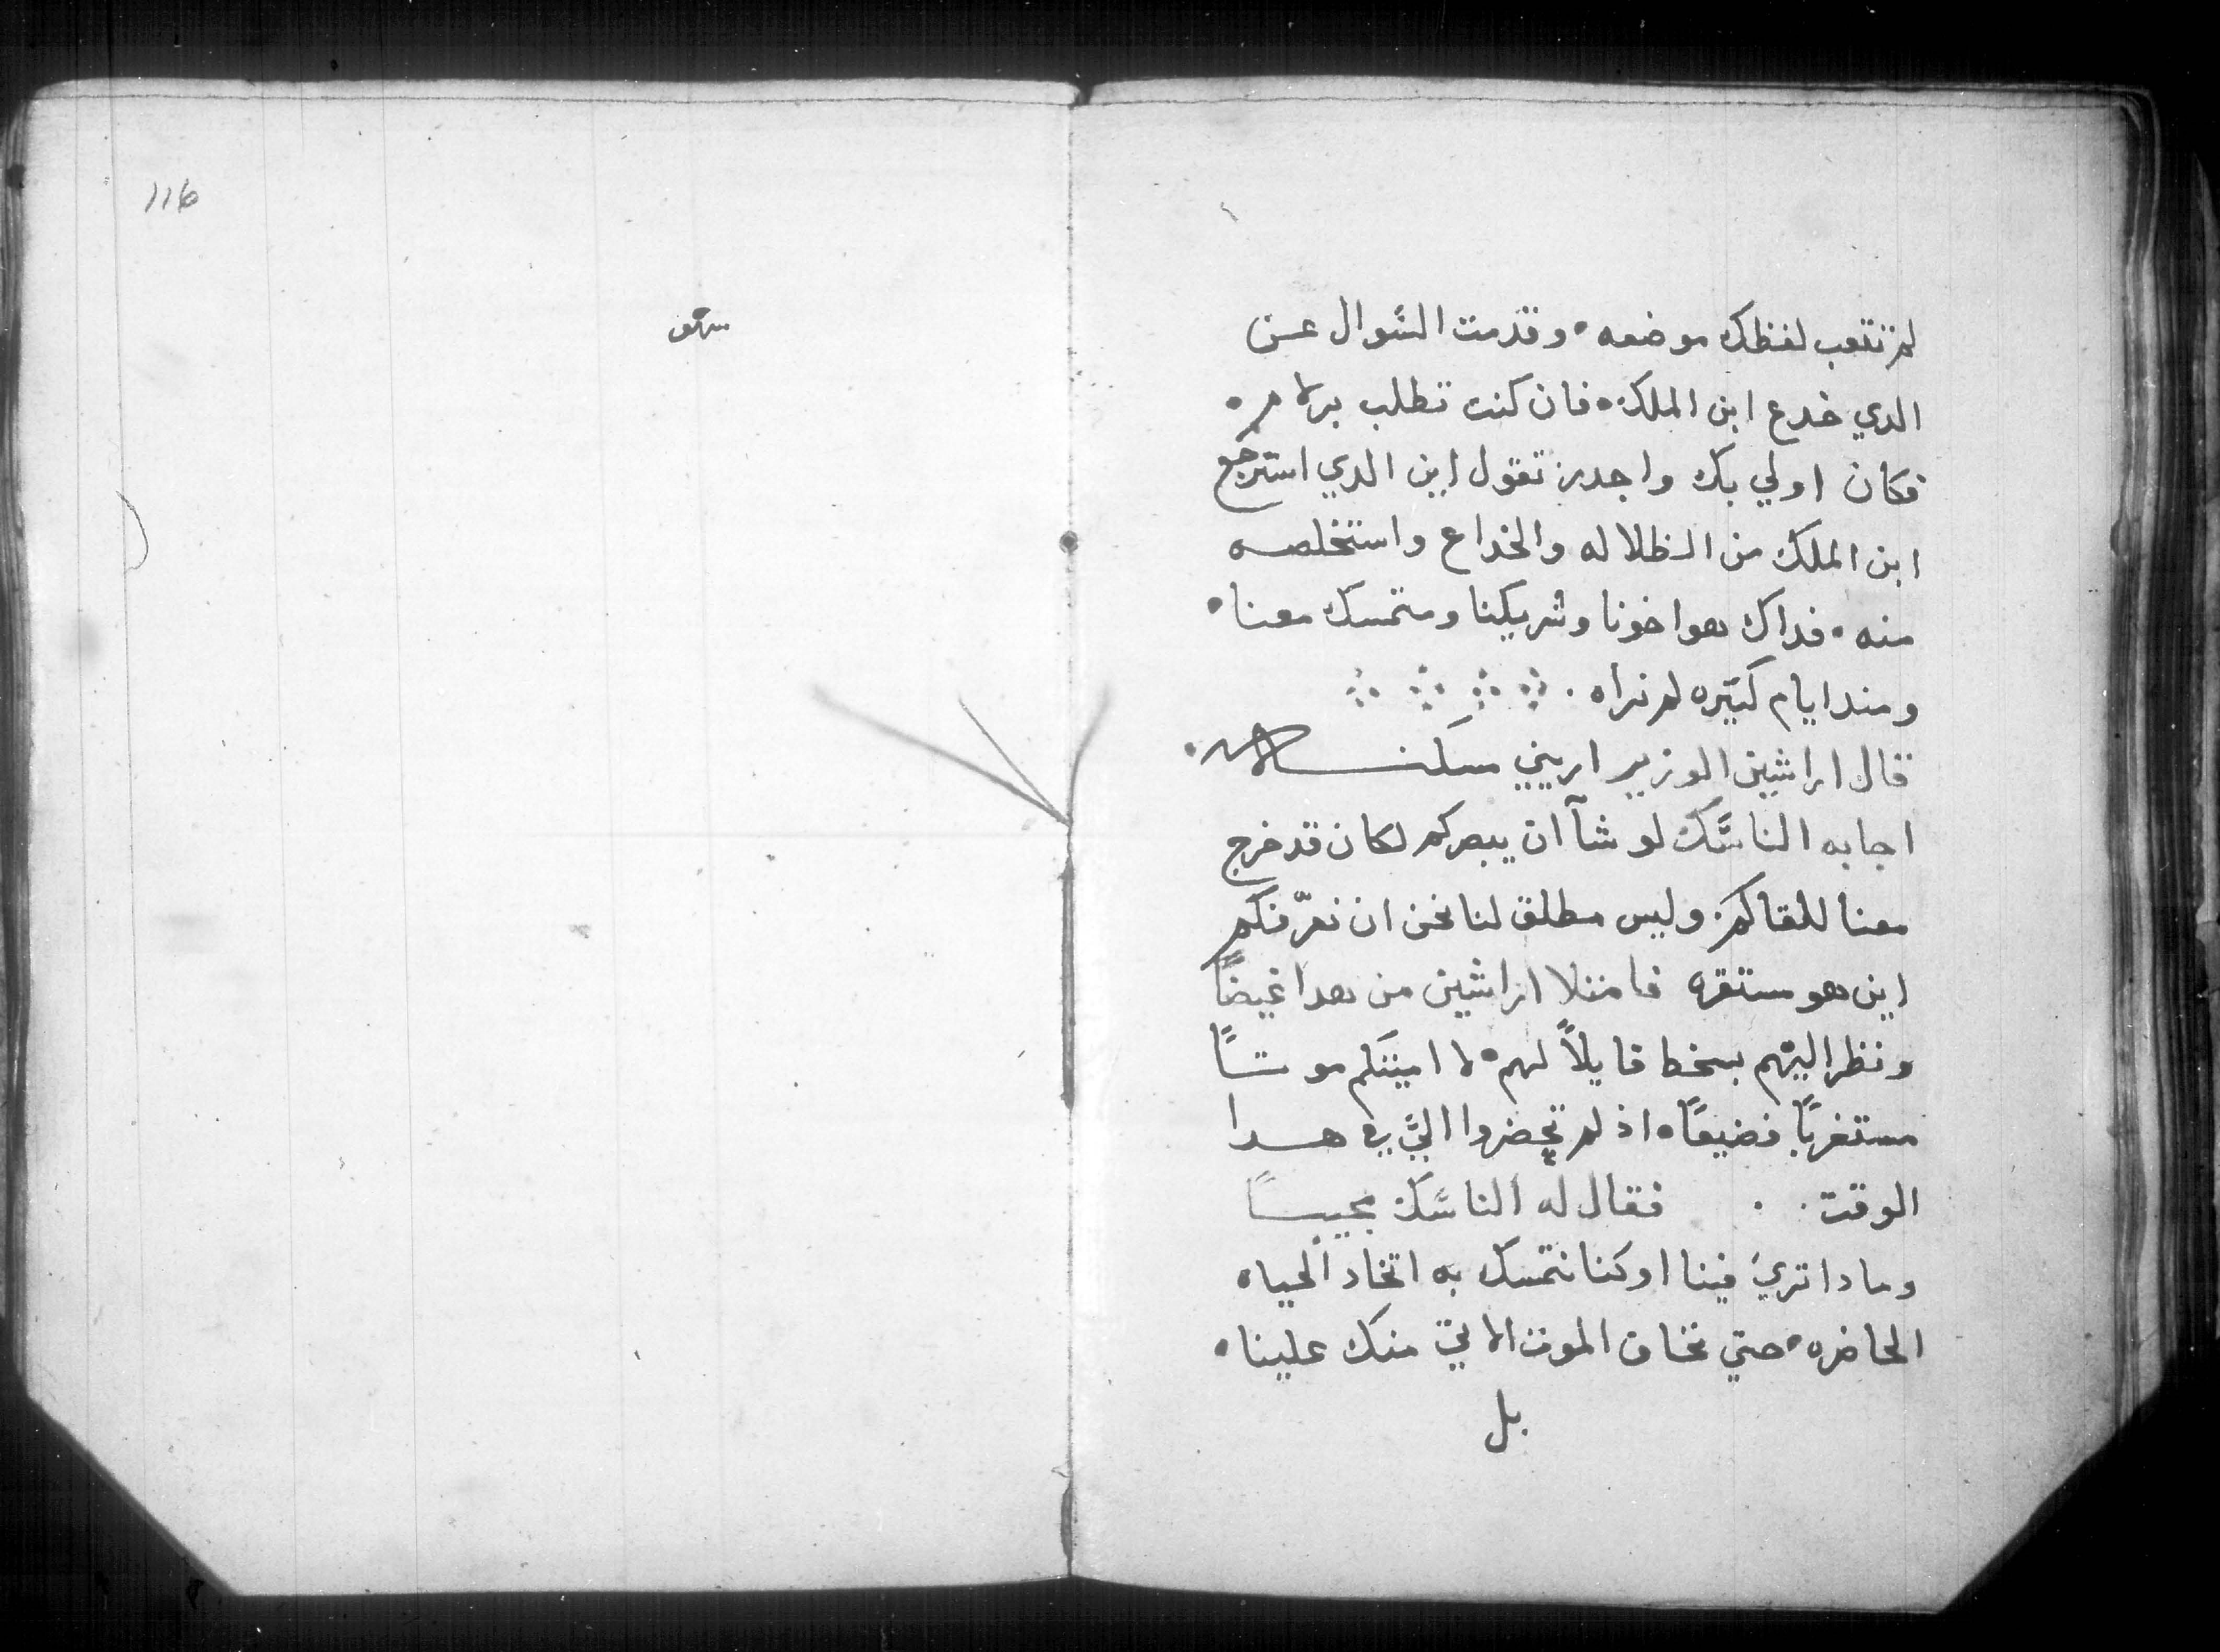 لم تتعب لفظك موضعه ٠ وقدمت السوال عن
الدي خدع ابن الملك ٠ فان كنت تطلب برلام ٠
فكان اولي بك واجدر تقول اين الدي استرجع
ابن الملك من الظلاله والخداع واستخلصه
منه ٠ فداك هو اخونا وشريكنا ومتمسك معنا ٠
ومند ايام كتيره لم نراه ٠
قال اراشين الوزير اريني مسكنه
اجابه الناسك لو شآ ان يبصركم لكان قد خرج
معنا للقاكم ٠ وليس مطلق لنا نحن ان نعرّفكم
اين هو مستقره فامتلا اراشين من هدا غيضاً
ونظر اليهم بسخط قايلاً لهم ٠ لا اميتكم موتاً
مستغرباً فضيعاً ٠ اذ لم تحضروا اليّ في هدا
الوقت ٠ ٠ فقال له الناسك مجيباً
ومادا تري فينا او كنا نتمسك به اتخاد الحياه
الحاضره ٠ حتي نخاف الموت الاتي منك علينا ٠
بل
116